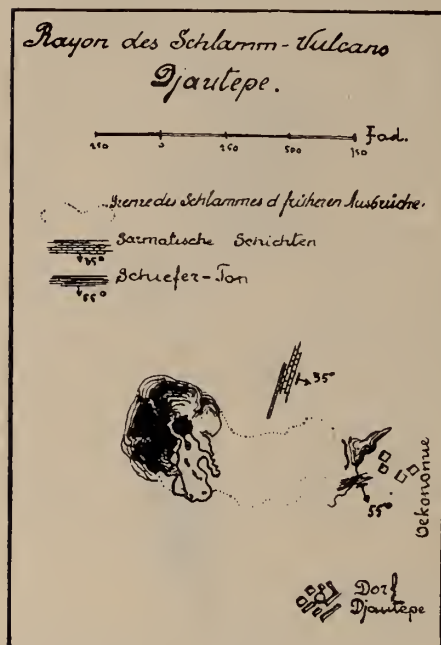 Rayon des Schlamm-Vulcans
Djautepe.
Fad.
250 0 250 500 750
Grenze des Schlammes d früheren Ausbrüche.
Sarmatische Schichten
35°
Schiefer-Ton
55°
35°
55°
Oekonomie
Dorf
Djautepe